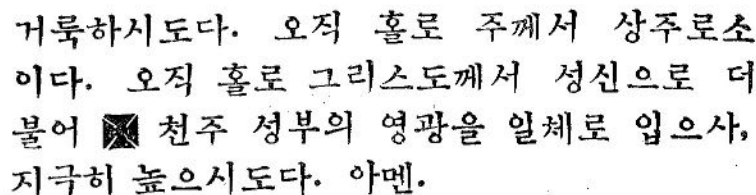 거룩하시도다. 오직 홀로 주께서 상주로소
이다. 오직 홀로 그리스도께서 성신으로 더
불어 ✠ 천주 성부의 영광을 일체로 입으사,
지극히 높으시도다. 아멘.